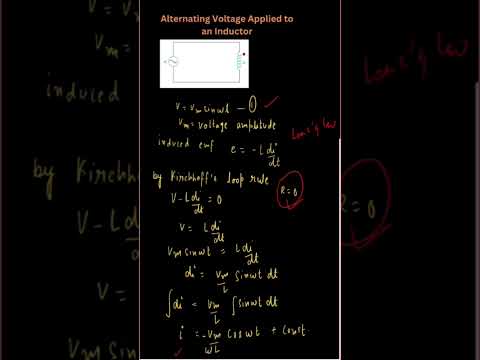 Alternating Voltage Applied to
an Inductor
V = Vm sinωt — ①
Vm = voltage amplitude
induced emf e = -L di/dt
Lenz's law
by Kirchhoff's loop rule
R = 0
V - L di/dt = 0
V = L di/dt
Vm sinωt = L di/dt
di = Vm/L sinωt dt
∫di = Vm/L ∫sinωt dt
i = -Vm/ωL cosωt + const